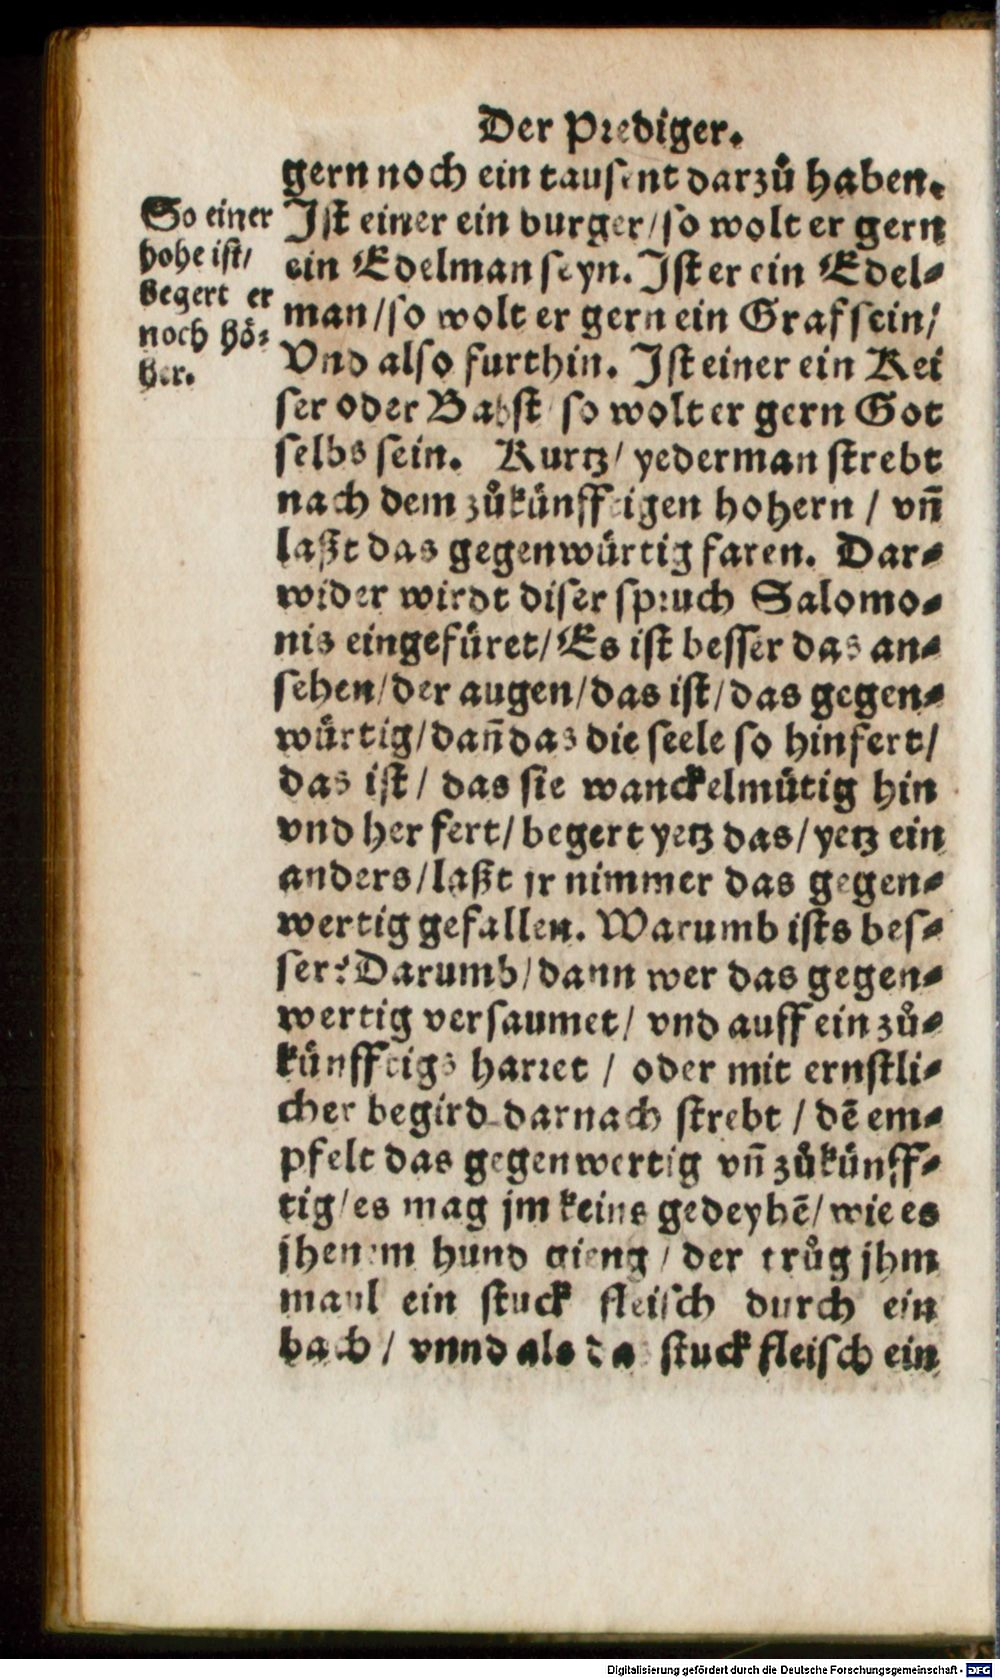 Der Prediger.
gern noch ein tausent darzů haben.
Ist einer ein burger/so wolt er gern
ein Edelman seyn. Ist er ein Edel-
man/so wolt er gern ein Graf sein/
Vnd also furthin. Ist einer ein Kei
ser oder Babst so wolt er gern Got
selbs sein. Kurtz/ yederman strebt
nach dem zůkünfftigen hohern / vn̄
laßt das gegenwürtig faren. Dar-
wider wirdt diser spruch Salomo-
nis eingefüret/Es ist besser das an-
sehen/der augen/das ist/das gegen-
würtig/dan̄ das die seele so hinfert/
das ist/ das sie wanckelmütig hin
vnd her fert/begert yetz das/yetz ein
anders/laßt jr nimmer das gegen-
wertig gefallen. Warumb ists bes-
ser? Darumb/dann wer das gegen-
wertig versaumet/ vnd auff ein zů-
künfftigs harret / oder mit ernstli-
cher begird darnach strebt / dē em-
pfelt das gegenwertig vn̄ zůkünff-
tig/es mag jm keins gedeyhē/wie es
jhenem hund gieng / der trůg jhm
maul ein stuck fleisch durch ein
bach / vnnd als das stuck fleisch ein
So einer
hohe ist/
begert er
noch hö-
her.
Digitalisierung gefördert durch die Deutsche Forschungsgemeinschaft - DFG